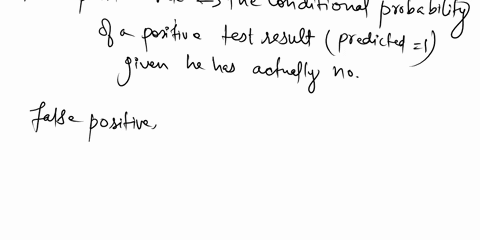 the conditional probability
of a positive test result (predicted = 1)
given he has actually no.
false positive,